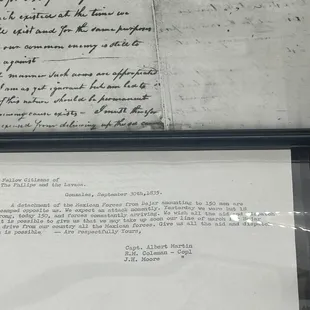 ich existed at the time we
exist and for the same purposes
our common enemy is still to
against
manner such arms are appropriated
I am as yet ignorant but am led to
of this nature should be permanent
cause exists — I must
from delivering up the
Fellow Citizens of
The Fallips and the Lavaca.
Gonzales, September 30th,1835.
A detachment of the Mexican Forces from Bejar amounting to 150 men are
encamped opposite us. We expect an attack momently. Yesterday we were but 18
strong, today 150, and forces constantly arriving. We wish all the aid and
it is possible to give us that we may take up soon our line of march
drive from our country all the Mexican forces. Give us all the aid and
is possible" — Are Respectfully Yours,
Capt. Albert Martin
R.M. Coleman - Capt
J.H. Moore "